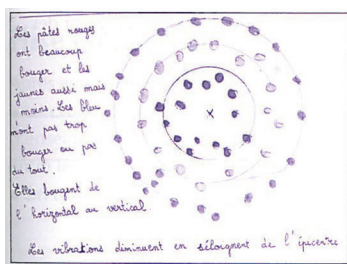 Les pâtes rouges
ont beaucoup
bouger et les
jaunes aussi mais
moins. Les bleu
n'ont pas trop
bouger ou pas
du tout.
Elles bougent de
l'horizontal au vertical.
Les vibrations diminuent en séloignent de l'épicentre